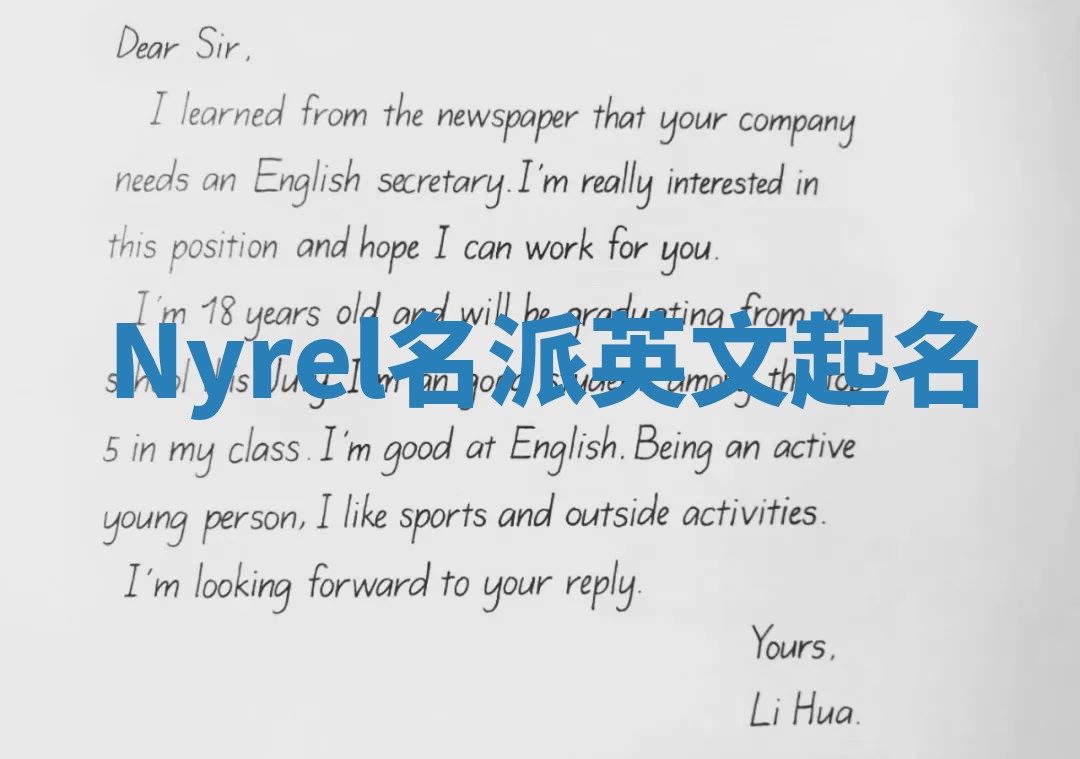 Dear Sir,
I learned from the newspaper that your company
needs an English secretary. I'm really interested in
this position and hope I can work for you.
I'm 18 years old and will be graduating from xx
Nyrel名派英文起名
school this July. I'm an good student among the top
5 in my class. I'm good at English. Being an active
young person, I like sports and outside activities.
I'm looking forward to your reply.
Yours,
Li Hua.